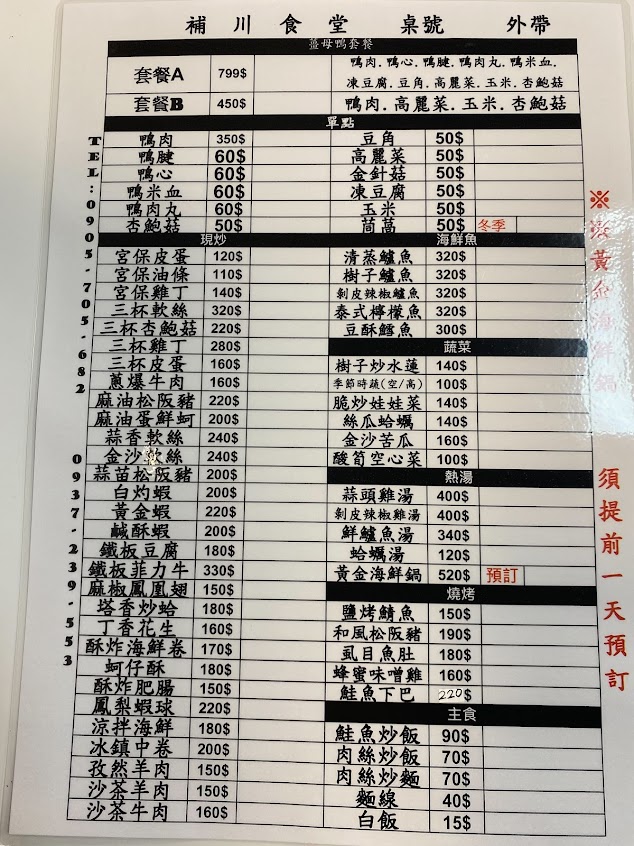 補川食堂 桌號 外帶
薑母鴨套餐
套餐A 799$ 鴨肉.鴨心.鴨腱.鴨肉丸.鴨米血.
凍豆腐.豆角.高麗菜.玉米.杏鮑菇
套餐B 450$ 鴨肉.高麗菜.玉米.杏鮑菇
單點
鴨肉 350$ 豆角 50$
鴨腱 60$ 高麗菜 50$
鴨心 60$ 金針菇 50$
鴨米血 60$ 凍豆腐 50$
鴨肉丸 60$ 玉米 50$
杏鮑菇 50$ 茼萵 50$ 冬季
現炒
宮保皮蛋 120$
宮保油條 110$
宮保雞丁 140$
三杯軟絲 320$
三杯杏鮑菇 220$
三杯雞丁 280$
三杯皮蛋 160$
蔥爆牛肉 160$
麻油松阪豬 220$
麻油蛋鮮蚵 200$
蒜香軟絲 240$
金沙軟絲 240$
蒜苗松阪豬 200$
白灼蝦 200$
黃金蝦 220$
鹹酥蝦 200$
鐵板豆腐 180$
鐵板菲力牛 330$
麻椒鳳凰翅 150$
塔香炒蛤 180$
丁香花生 160$
酥炸海鮮卷 170$
蚵仔酥 180$
酥炸肥腸 150$
鳳梨蝦球 220$
涼拌海鮮 180$
冰鎮中卷 200$
孜然羊肉 150$
沙茶羊肉 150$
沙茶牛肉 160$
海鮮魚
清蒸鱸魚 320$
樹子鱸魚 320$
剝皮辣椒鱸魚 320$
泰式檸檬魚 320$
豆酥鱈魚 300$
蔬菜
樹子炒水蓮 140$
季節時蔬(空/高) 100$
脆炒娃娃菜 140$
絲瓜蛤蠣 140$
金沙苦瓜 160$
酸筍空心菜 100$
熱湯
蒜頭雞湯 400$
剝皮辣椒雞湯 400$
鮮鱸魚湯 340$
蛤蠣湯 120$
黃金海鮮鍋 520$ 預訂
燒烤
鹽烤鯖魚 150$
和風松阪豬 190$
虱目魚肚 180$
蜂蜜味噌雞 160$
鮭魚下巴 220$
主食
鮭魚炒飯 90$
肉絲炒飯 70$
肉絲炒麵 70$
麵線 40$
白飯 15$
TEL:0905-705-682
0937-239-553
※ 黃金海鮮鍋
須提前一天預訂